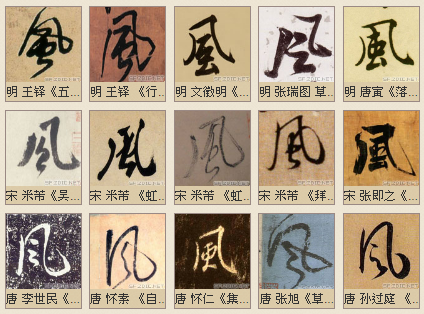 風 風 風 風 風
明 王铎《五... 明 王铎 《行... 明 文徵明《... 明 张瑞图 草... 明 唐寅《落...
風 風 風 風 風
宋 米芾《吴... 宋 米芾 《虹... 宋 米芾 《虹... 宋 米芾 《拜... 宋 张即之《...
風 風 風 風 風
唐 李世民《... 唐 怀素 《自... 唐 怀仁《集... 唐 张旭《草... 唐 孙过庭 《...